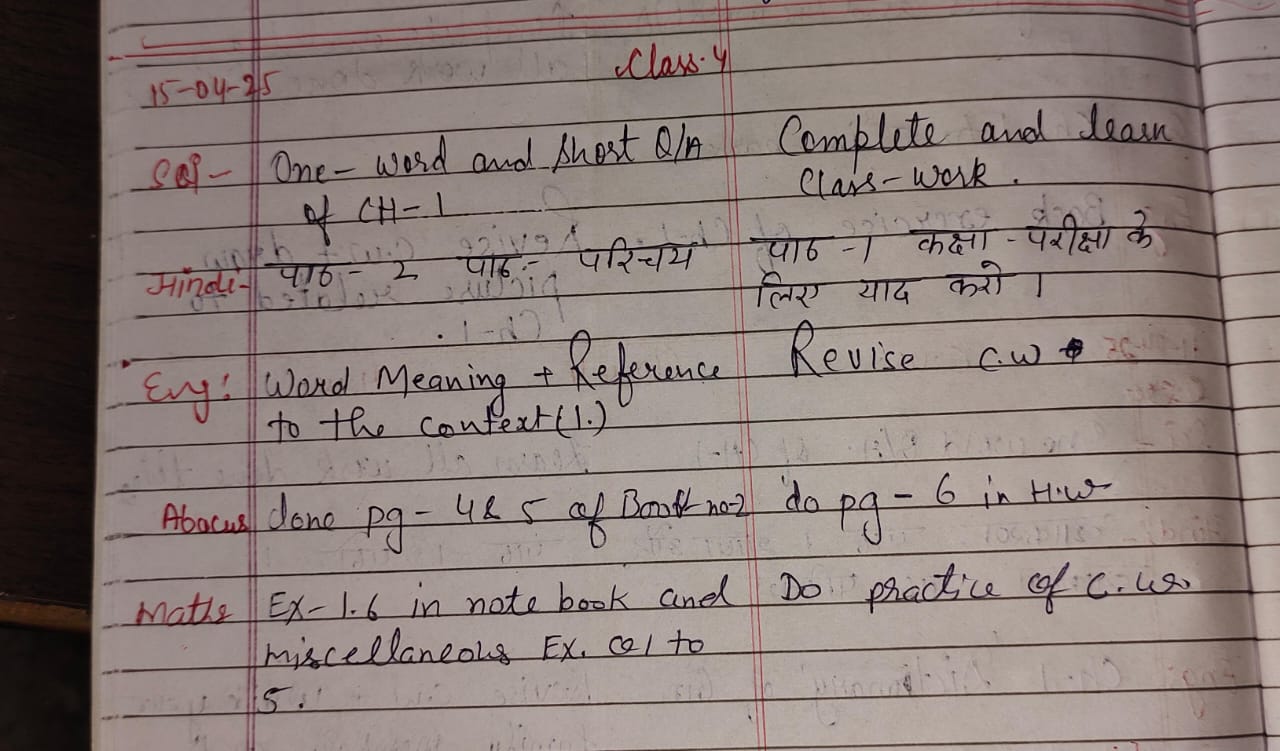 Class-4
15-04-25
Sci- One-word and short Q/A Complete and learn
of CH-1 Class-work.
पाठ-2 पाठ-परिचय पाठ-1 कक्षा-परीक्षा के
लिए याद करो।
Eng: Word Meaning + Reference Revise C.W
to the context (1.)
Abacus done pg-4 & 5 of Book no-2 do pg-6 in H.w
Maths Ex-1.6 in note book and Do practice of C.w.
miscellaneous Ex. Q1 to
5.